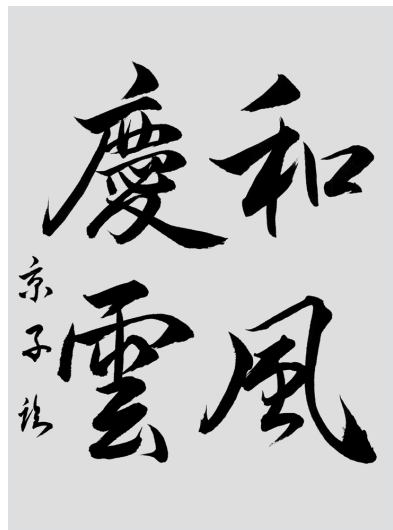 和風
慶雲
京子